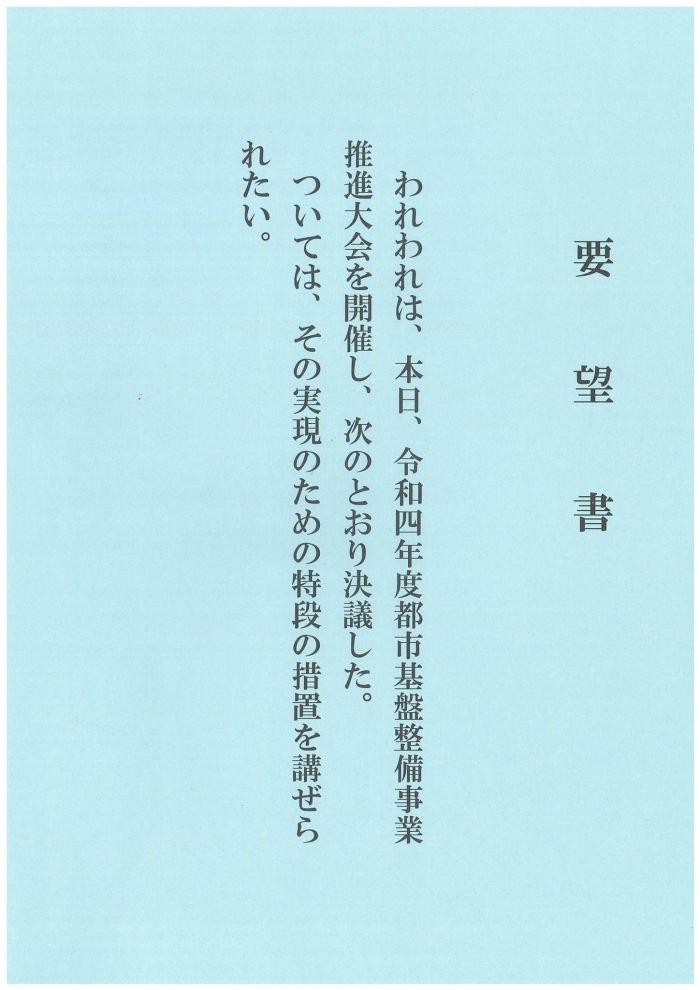 要望書
われわれは、本日、令和四年度都市基盤整備事業
推進大会を開催し、次のとおり決議した。
ついては、その実現のための特段の措置を講ぜら
れたい。